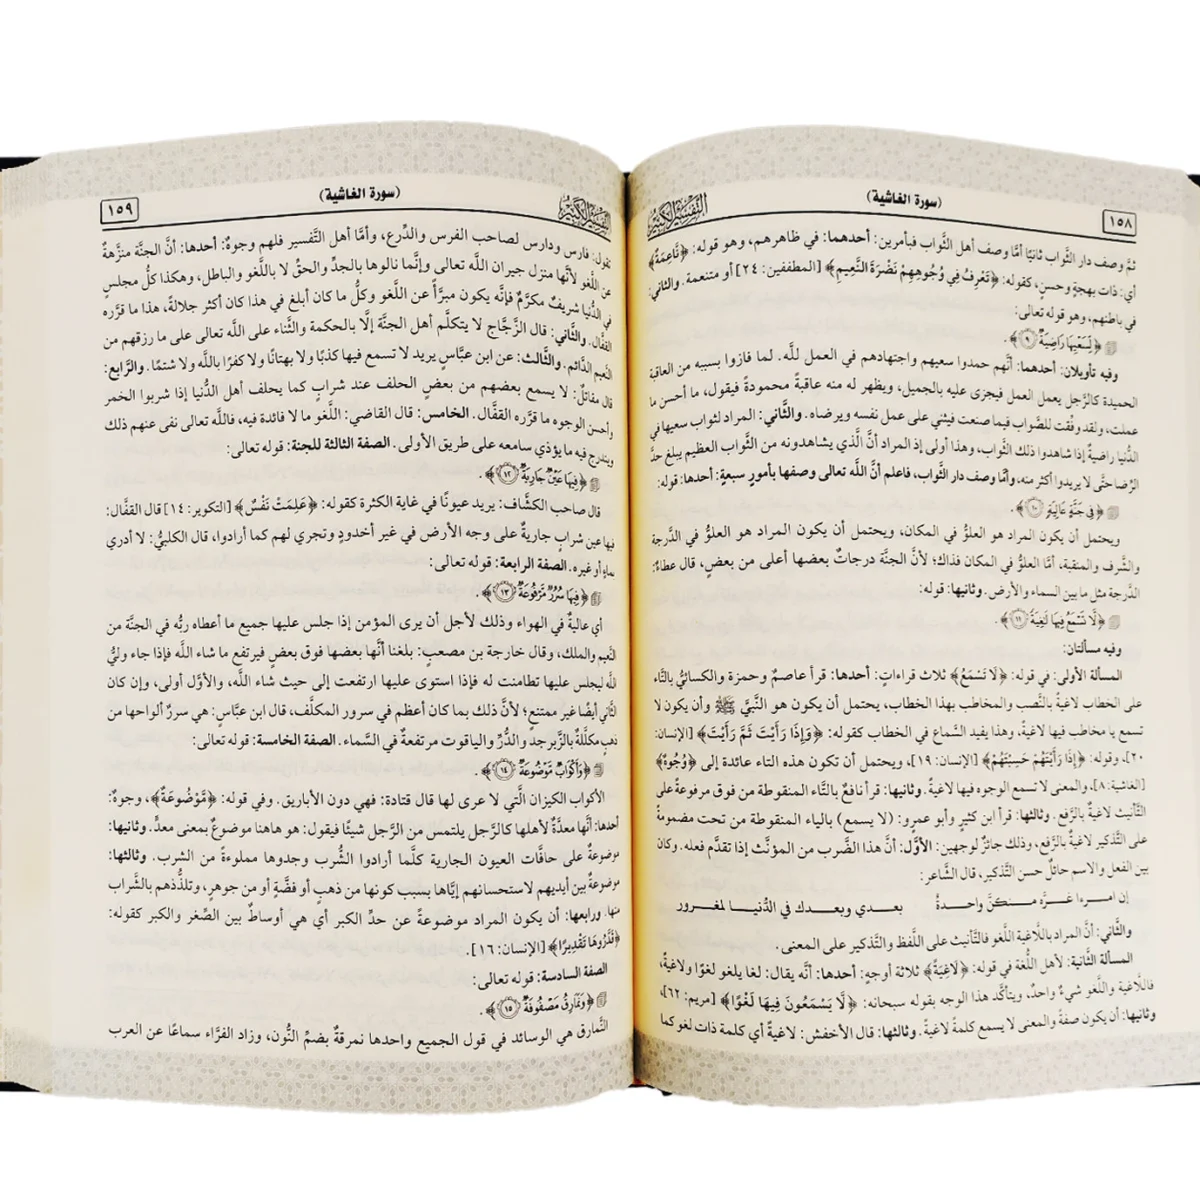 ١٥٨
(سورة الغاشية)
التفسير الكبير
ثمَّ وصف دار الثَّواب ثانيًا أمَّا وصف أهل الثَّواب فبأمرين: أحدهما: في ظاهرهم، وهو قوله: ﴿نَّاعِمَةٌ﴾
أي: ذات بهجةٍ وحسنٍ، كقوله: ﴿تَعْرِفُ فِي وُجُوهِهِمْ نَضْرَةَ النَّعِيمِ﴾ [المطففين: ٢٤] أو متنعمة. والثاني:
في باطنهم، وهو قوله تعالى:
﴿لِّسَعْيِهَا رَاضِيَةٌ ٩﴾.
وفيه تأويلان: أحدهما: أنَّهم حمدوا سعيهم واجتهادهم في العمل للَّه. لما فازوا بسببه من العاقبة
الحميدة كالرَّجل يعمل العمل فيجزى عليه بالجميل، ويظهر له منه عاقبةٌ محمودةٌ فيقول، ما أحسن ما
عملت، ولقد وفِّقت للصَّواب فيما صنعت فيثني على عمل نفسه ويرضاه. والثَّاني: المراد لثواب سعيها في
الدُّنيا راضيةٌ إذا شاهدوا ذلك الثَّواب، وهذا أولى إذ المراد أنَّ الَّذي يشاهدونه من الثَّواب العظيم يبلغ حدَّ
الرِّضا حتَّى لا يريدوا أكثر منه، وأمَّا وصف دار الثَّواب، فاعلم أنَّ اللَّه تعالى وصفها بأمورٍ سبعةٍ: أحدها: قوله:
﴿فِي جَنَّةٍ عَالِيَةٍ ١٠﴾.
ويحتمل أن يكون المراد هو العلوُّ في المكان، ويحتمل أن يكون المراد هو العلوُّ في الدَّرجة
والشَّرف والمنقبة، أمَّا العلوُّ في المكان فذاك؛ لأنَّ الجنَّة درجاتٌ بعضها أعلى من بعضٍ، قال عطاءٌ:
الدَّرجة مثل ما بين السماء والأرض. وثانيها: قوله:
﴿لَّا تَسْمَعُ فِيهَا لَٰغِيَةً ١١﴾.
وفيه مسألتان:
المسألة الأولى: في قوله: ﴿لَا تَسْمَعُ﴾ ثلاث قراءاتٍ: أحدها: قرأ عاصمٌ وحمزة والكسائيُّ بالتَّاء
على الخطاب لاغيةً بالنَّصب والمخاطب بهذا الخطاب، يحتمل أن يكون هو النَّبيَّ ﷺ وأن يكون لا
تسمع يا مخاطب فيها لاغيةً، وهذا يفيد السَّماع في الخطاب كقوله: ﴿وَإِذَا رَأَيْتَ ثَمَّ رَأَيْتَ﴾ [الإنسان:
٢٠]، وقوله: ﴿إِذَا رَأَيْتَهُمْ حَسِبْتَهُمْ﴾ [الإنسان: ١٩]، ويحتمل أن تكون هذه التاء عائدة إلى ﴿وُجُوهٌ﴾
[الغاشية: ٨]، والمعنى لا تسمع الوجوه فيها لاغيةً. وثانيها: قرأ نافعٌ بالتَّاء المنقوطة من فوق مرفوعةً على
التَّأنيث لاغيةٌ بالرَّفع. وثالثها: قرأ ابن كثيرٍ وأبو عمرٍو: (لا يسمع) بالياء المنقوطة من تحت مضمومةً
على التَّذكير لاغيةٌ بالرَّفع، وذلك جائزٌ لوجهين: الأوَّل: أنَّ هذا الضَّرب من المؤنَّث إذا تقدَّم فعله. وكان
بين الفعل والاسم حائلٌ حسن التَّذكير، قال الشَّاعر:
إن امرءا غرَّه منكنَّ واحدةٌ بعدي وبعدك في الدُّنيا لمغرور
والثَّاني: أنَّ المراد باللَّاغية اللَّغو فالتَّأنيث على اللَّفظ والتَّذكير على المعنى.
المسألة الثَّانية: لأهل اللُّغة في قوله: ﴿لَاغِيَةً﴾ ثلاثة أوجهٍ: أحدها: أنَّه يقال: لغا يلغو لغوًا ولاغيةً،
فاللَّاغية واللَّغو شيءٌ واحدٌ، ويتأكَّد هذا الوجه بقوله سبحانه: ﴿لَّا يَسْمَعُونَ فِيهَا لَغْوًا﴾ [مريم: ٦٢]،
وثانيها: أن يكون صفةً والمعنى لا يسمع كلمةً لاغيةً. وثالثها: قال الأخفش: لاغيةً أي كلمة ذات لغو كما
التفسير الكبير
(سورة الغاشية)
١٥٩
تقول: فارس ودارس لصاحب الفرس والدِّرع، وأمَّا أهل التَّفسير فلهم وجوهٌ: أحدها: أنَّ الجنَّة منزَّهةٌ
عن اللَّغو لأنَّها منزل جيران اللَّه تعالى وإنَّما نالوها بالجدِّ والحقِّ لا باللَّغو والباطل، وهكذا كلُّ مجلسٍ
في الدُّنيا شريفٌ مكرَّمٌ فإنَّه يكون مبرَّأً عن اللَّغو وكلُّ ما كان أبلغ في هذا كان أكثر جلالةً، هذا ما قرَّره
القفَّال. والثَّاني: قال الزَّجَّاج لا يتكلَّم أهل الجنَّة إلَّا بالحكمة والثَّناء على اللَّه تعالى على ما رزقهم من
النَّعيم الدَّائم. والثَّالث: عن ابن عبَّاسٍ يريد لا تسمع فيها كذبًا ولا بهتانًا ولا كفرًا باللَّه ولا شتمًا. والرَّابع:
قال مقاتلٌ: لا يسمع بعضهم من بعضٍ الحلف عند شرابٍ كما يحلف أهل الدُّنيا إذا شربوا الخمر
وأحسن الوجوه ما قرَّره القفَّال. الخامس: قال القاضي: اللَّغو ما لا فائدة فيه، فاللَّه تعالى نفى عنهم ذلك
ويندرج فيه ما يؤذي سامعه على طريق الأولى. الصفة الثالثة للجنة: قوله تعالى:
﴿فِيهَا عَيْنٌ جَارِيَةٌ ١٢﴾.
قال صاحب الكشَّاف: يريد عيونًا في غاية الكثرة كقوله: ﴿عَلِمَتْ نَفْسٌ﴾ [التكوير: ١٤] قال القفَّال:
فيها عين شرابٍ جاريةٌ على وجه الأرض في غير أخدودٍ وتجري لهم كما أرادوا، قال الكلبيُّ: لا أدري
بماءٍ أو غيره. الصفة الرابعة: قوله تعالى:
﴿فِيهَا سُرُرٌ مَّرْفُوعَةٌ ١٣﴾.
أي عاليةٌ في الهواء وذلك لأجل أن يرى المؤمن إذا جلس عليها جميع ما أعطاه ربُّه في الجنَّة من
النَّعيم والملك، وقال خارجة بن مصعبٍ: بلغنا أنَّها بعضها فوق بعضٍ فيرتفع ما شاء اللَّه فإذا جاء وليُّ
اللَّه ليجلس عليها تطامنت له فإذا استوى عليها ارتفعت إلى حيث شاء اللَّه، والأوَّل أولى، وإن كان
الثَّاني أيضًا غير ممتنعٍ؛ لأنَّ ذلك بما كان أعظم في سرور المكلَّف، قال ابن عبَّاسٍ: هي سررٌ ألواحها من
ذهبٍ مكلَّلةٌ بالزَّبرجد والدُّرِّ والياقوت مرتفعةٌ في السَّماء. الصفة الخامسة: قوله تعالى:
﴿وَأَكْوَابٌ مَّوْضُوعَةٌ ١٤﴾.
الأكواب الكيزان الَّتي لا عرى لها قال قتادة: فهي دون الأباريق. وفي قوله: ﴿مَّوْضُوعَةٌ﴾، وجوهٌ:
أحدها: أنَّها معدَّةٌ لأهلها كالرَّجل يلتمس من الرَّجل شيئًا فيقول: هو هاهنا موضوعٌ بمعنى معدٍّ. وثانيها:
موضوعةٌ على حافَّات العيون الجارية كلَّما أرادوا الشُّرب وجدوها مملوءةً من الشرب. وثالثها:
موضوعةٌ بين أيديهم لاستحسانهم إيَّاها بسبب كونها من ذهبٍ أو فضَّةٍ أو من جوهرٍ، وتلذُّذهم بالشَّراب
منها. ورابعها: أن يكون المراد موضوعةً عن حدِّ الكبر أي هي أوساطٌ بين الصِّغر والكبر كقوله:
﴿قَدَّرُوهَا تَقْدِيرًا﴾ [الإنسان: ١٦].
الصفة السادسة: قوله تعالى:
﴿وَنَمَارِقُ مَصْفُوفَةٌ ١٥﴾.
النَّمارق هي الوسائد في قول الجميع واحدها نمرقةٌ بضمِّ النُّون، وزاد الفرَّاء سماعًا عن العرب